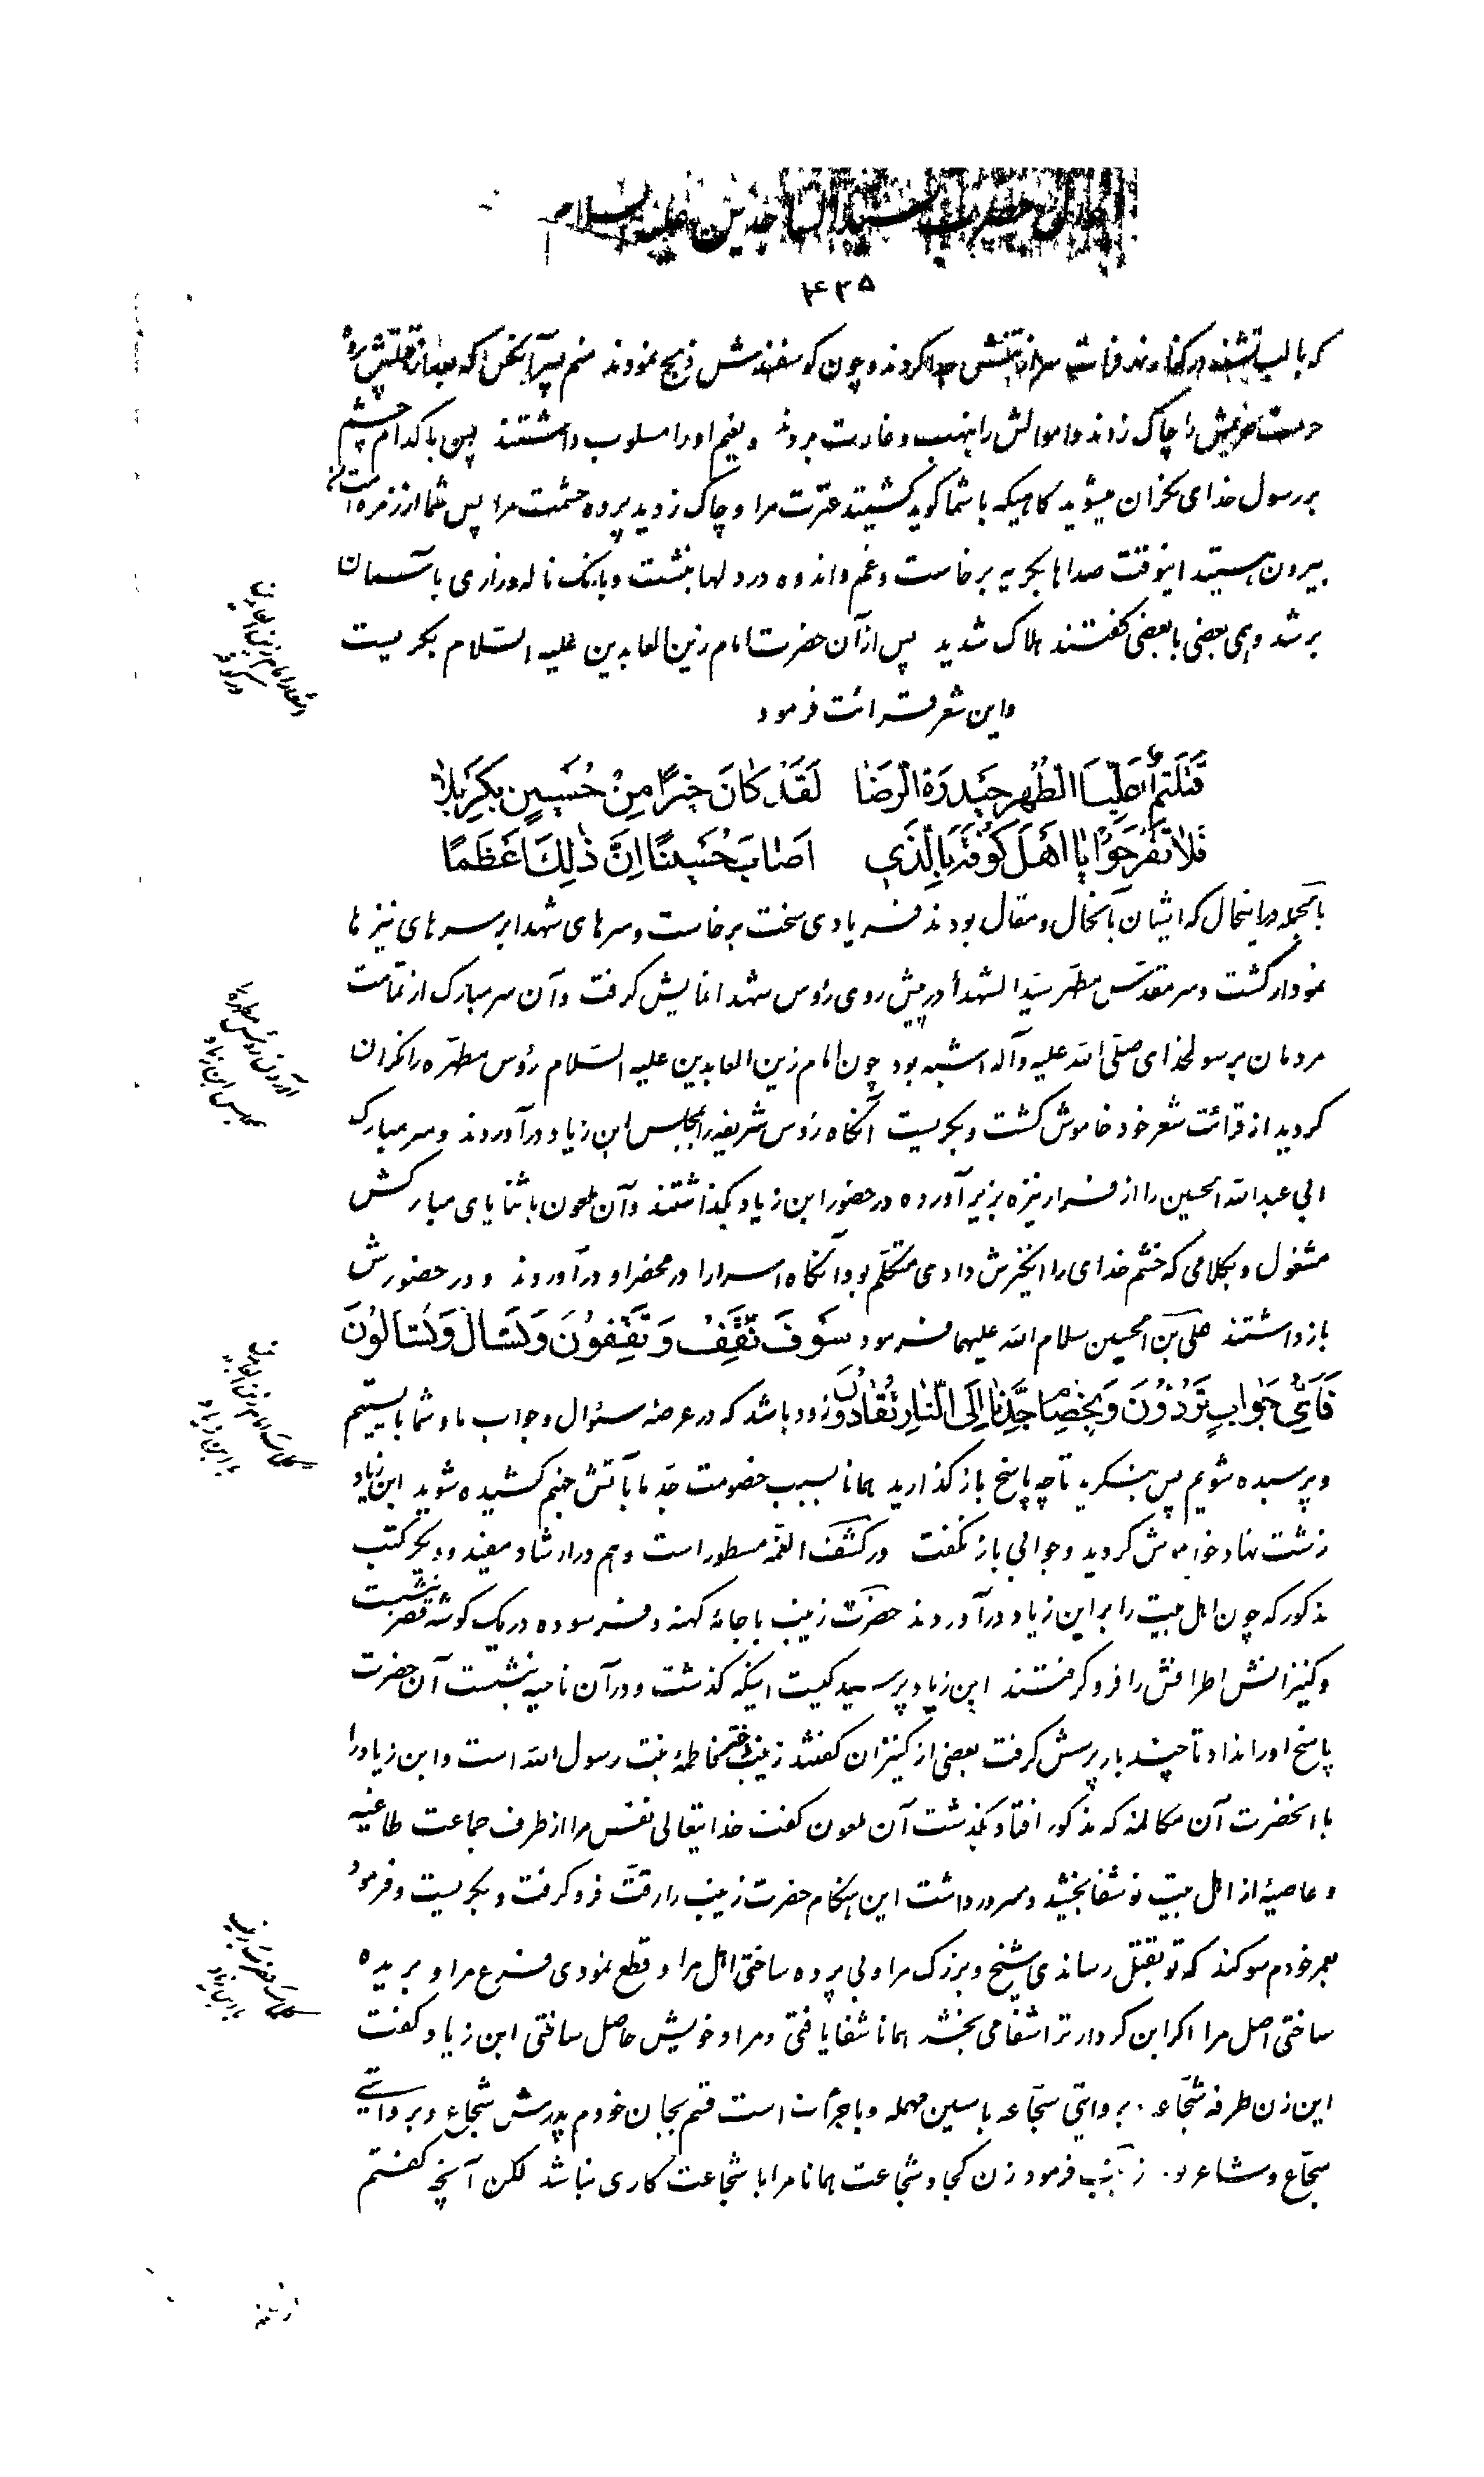 احوال حضرت سید الساجدین علیه السلام
۴۳۵
که بالب تشنه در کنار نهر فرات سر از تنش جدا کردند و چون کوسفندش ذبح نمودند منم پسر آنکس که بعد از قتلش پرده
حرمت حریمش را چاک زدند و اموالش را بنهب و غارت بردند و یغم او را مسلوب داشتند پس با کدام چشم
بر رسول خدای نکران میشوید کاهیکه با شما کوید کشتید عترت مرا و چاک زدید پرده حشمت مرا پس شما از زمره امت من
بیرون هستید اینوقت صداها بکریه برخاست و غم و اندوه در دلها بنشست و بانک ناله و زاری بآسمان
بر شد و همی بعضی با بعضی کفتند هلاک شدید پس از آن حضرت امام زین العابدین علیه السلام بکریست
و این شعر قرائت فرمود
قَتَلْتُمْ عَلِیًّا الطُّهْرَ حَیْدَرَةَ الرِّضَا لَقَدْ كَانَ خَیْرًا مِنْ حُسَیْنٍ بِكَرْبَلا
فَلا تَفْرَحُوا یا اَهْلَ كُوفَةَ بِالَّذِی اَصابَ حُسَیْنًا اِنَّ ذٰلِكَ عَظُمَا
بالجمله در اینحال که ایشان بآنحال و مقال بودند فریادی سخت برخاست و سرهای شهدا بر سرهای نیزها
نمودار کشت و سر مقدس مطهر سید الشهدأ در پیش روی رؤس شهدا نمایش کرفت و آن سر مبارک از تمامت
مردمان برسولخدای صلی الله علیه وآله اشبه بود چون امام زین العابدین علیه السلام رؤس مطهره را نکران
کردید از قرائت شعر خود خاموش کشت و بکریست آنکاه رؤس شریفه را بمجلس ابن زیاد درآوردند و سر مبارک
ابی عبد الله الحسین را از فراز نیزه بزیر آورده در حضور ابن زیاد بکذاشتند و آن ملعون با ثنایای مبارکش
مشغول و بکلامی که خشم خدای را انکیزش دادی متکلم بود آنکاه اسرا را در محضر او درآوردند و در حضورش
بازداشتند علی بن الحسین سلام الله علیهما فرمود سَوْفَ نَقِفُ وَ تَقِفُونَ وَ نُسْأَلُ وَ تُسْأَلُونَ
فَاَیَّ جَوابٍ تَرُدُّونَ وَ بِخِصامِ جَدِّنا اِلَی النّارِ تُقادُونَ زود باشد که در عرصه سئوال و جواب ما و شما بایستیم
و پرسیده شویم پس بنکرید تا چه پاسخ باز کذارید همانا بسبب خصومت جد ما بآتش جهنم کشیده شوید ابن زیاد
زشت نهاد خواموش کردید و جوابی باز نکفت در کشف الغمه مسطور است و هم در ارشاد مفید و دیکر کتب
مذکور که چون اهل بیت را بر ابن زیاد درآوردند حضرت زینب با جامۀ کهنه و فرسوده در یک کوشه قصر بنشست
و کنیزانش اطرافش را فرو کرفتند ابن زیاد پرسید کیست اینکه کذشت و در آن ناحیه بنشست آن حضرت
پاسخ او را نداد تا چند بار پرسش کرفت بعضی از کنیزان کفتند زینب دختر فاطمۀ بنت رسول الله است و ابن زیاد را
با انحضرت آن مکالمه که مذکور افتاد بکذشت آن ملعون کفت خدایتعالی نفس مرا از طرف جماعت طاغیه
و عاصیۀ از اهل بیت تو شفا بخشید و مسرور داشت این هنکام حضرت زینب را رقت فرو کرفت و بکریست و فرمود
بعمر خودم سوکند که تو بقتل رساندی شیخ و بزرک مرا و بی پرده ساختی اهل مرا و قطع نمودی فرع مرا و بریده
ساختی اصل مرا اکر این کردار ترا شفا می بخشد همانا شفا یافتی و مراد خویش حاصل ساختی ابن زیاد کفت
این زن طرفه شجاعه . بروایتی سجاعه با سین مهمله و باجرأت است قسم بجان خودم پدرش شجاع و بروایتی
سجاع و شاعر بود زینب فرمود زن کجا و شجاعت همانا مرا با شجاعت کاری نباشد لکن آنچه کفتم
ورود امام زین العابدین
در کوفه
آوردن رؤس مطهره را
بمجلس ابن زیاد
مکالمات امام زین العابدین
با ابن زیاد
مکالمات حضرت زینب
با ابن زیاد